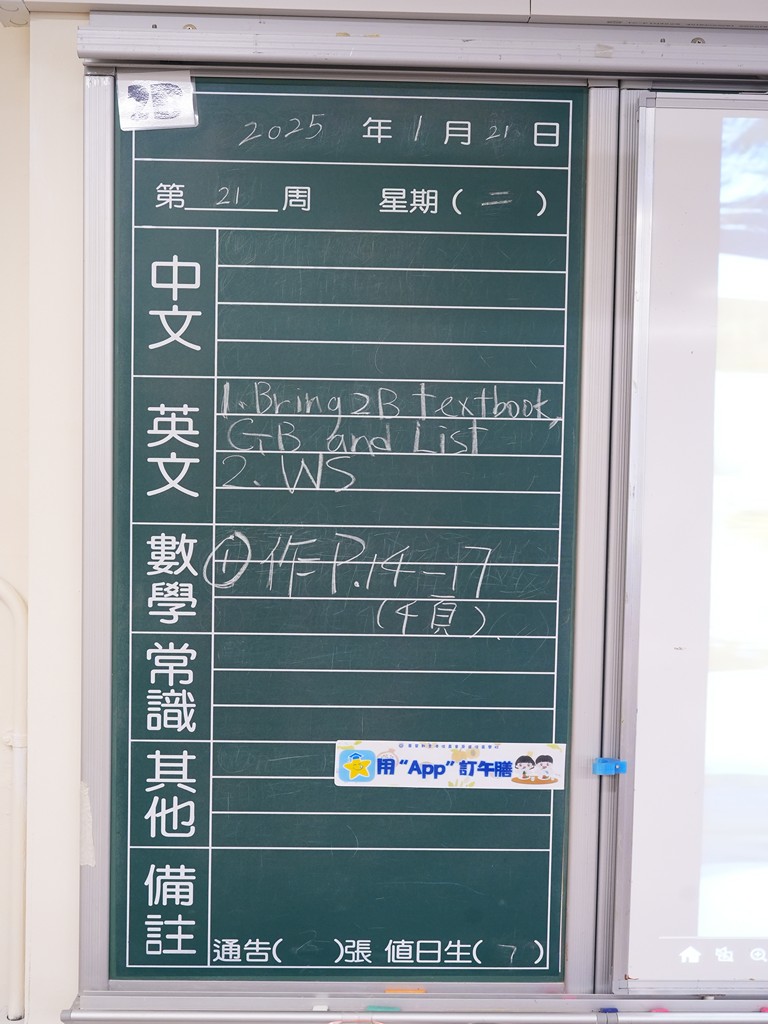 2025 年 1 月 21 日
第 21 周 星期 ( 二 )
中文
英文
1. Bring 2B textbook,
GB and List
2. WS
數學
① 作二 P.14-17
(4頁)
常識
其他
用 “App” 訂午膳
備註
通告( )張 值日生( 7 )